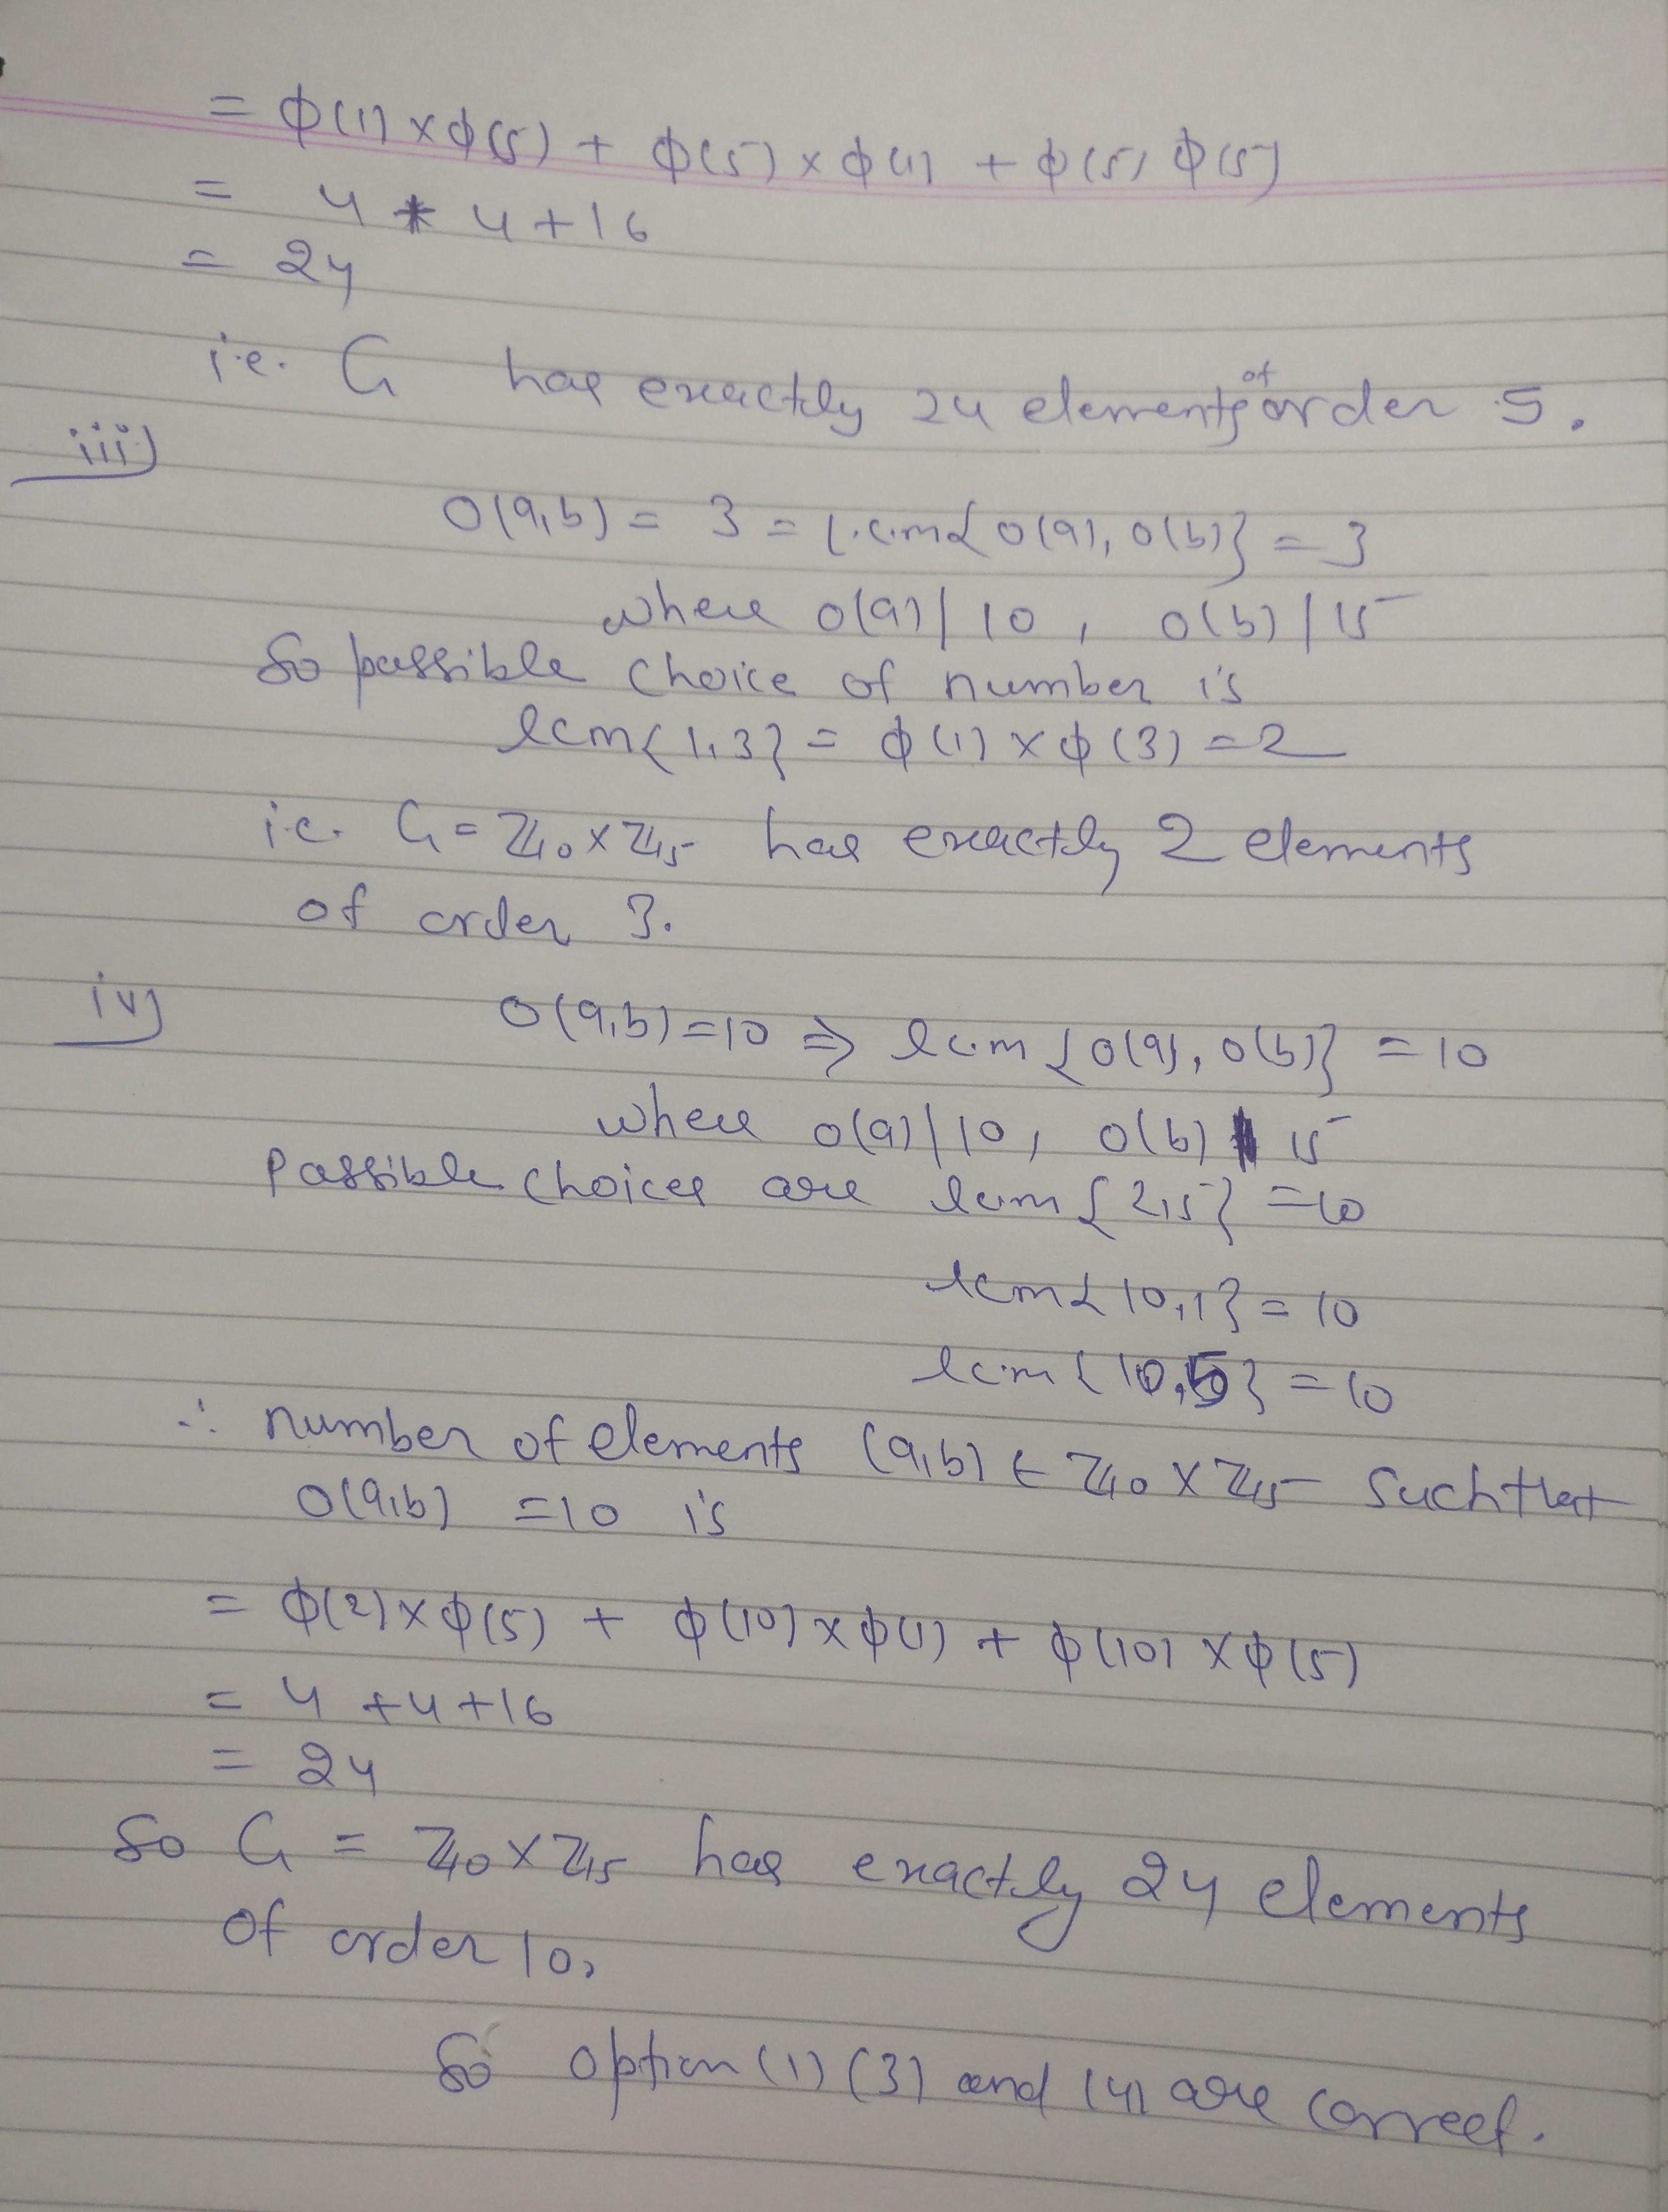 = ϕ(1) × ϕ(5) + ϕ(5) × ϕ(1) + ϕ(5) ϕ(5)
= 4 + 4 + 16
= 24
i.e. G has exactly 24 elements of order 5.
iii)
O(a,b) = 3 = l.c.m{O(a), O(b)} = 3
where O(a)/10, O(b)/15
So possible choice of number is
lcm{1,3} = ϕ(1) × ϕ(3) = 2
i.e. G = ℤ10 × ℤ15 has exactly 2 elements
of order 3.
iv) O(a,b) = 10 ⇒ lcm {O(a), O(b)} = 10
where O(a)/10, O(b) | 15
Possible choices are lcm {2,5} = 10
lcm{10,1} = 10
lcm{10,5} = 10
∴ number of elements (a,b) ∈ ℤ10 × ℤ15 such that
O(a,b) = 10 is
= ϕ(2) × ϕ(5) + ϕ(10) × ϕ(1) + ϕ(10) × ϕ(5)
= 4 + 4 + 16
= 24
So G = ℤ10 × ℤ15 has exactly 24 elements
of order 10.
So option (1) (3) and (4) are correct.